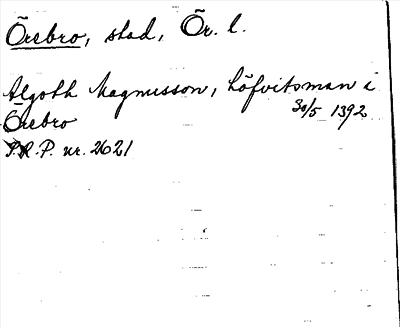 Örebro, stad, Ör. l.
Algoth Magnusson, höfvitsman i
Örebro 30/5 1392
S.R.P. nr. 2621